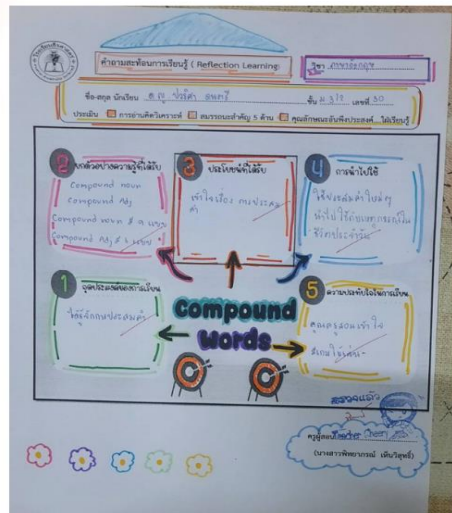 คำถามสะท้อนการเรียนรู้ ( Reflection Learning)
วิชา ภาษาอังกฤษ
ชื่อ-สกุล นักเรียน
ชั้น ม.3/2 เลขที่ 30
ประเมิน การอ่านคิดวิเคราะห์ สมรรถนะสำคัญ 5 ด้าน คุณลักษณะอันพึงประสงค์...ใฝ่เรียนรู้
2 ยกตัวอย่างความรู้ที่ได้รับ
Compound noun
Compound Adj
Compound noun มี 3 แบบ
Compound Adj มี
3 ประโยชน์ที่ได้รับ
เข้าใจเรื่อง การประสม
คำ
4 การนำไปใช้
ใช้ประสมคำใหม่ๆ
นำไปใช้กับเหตุการณ์ใน
ชีวิตประจำวัน
1 จุดประสงค์ของการเรียน
ได้รู้จักการประสมคำ
Compound
Words
5 ความประทับใจในการเรียน
คุณครูสอนเข้าใจ
ตรวจแล้ว
ครูผู้สอน Teacher Cherry